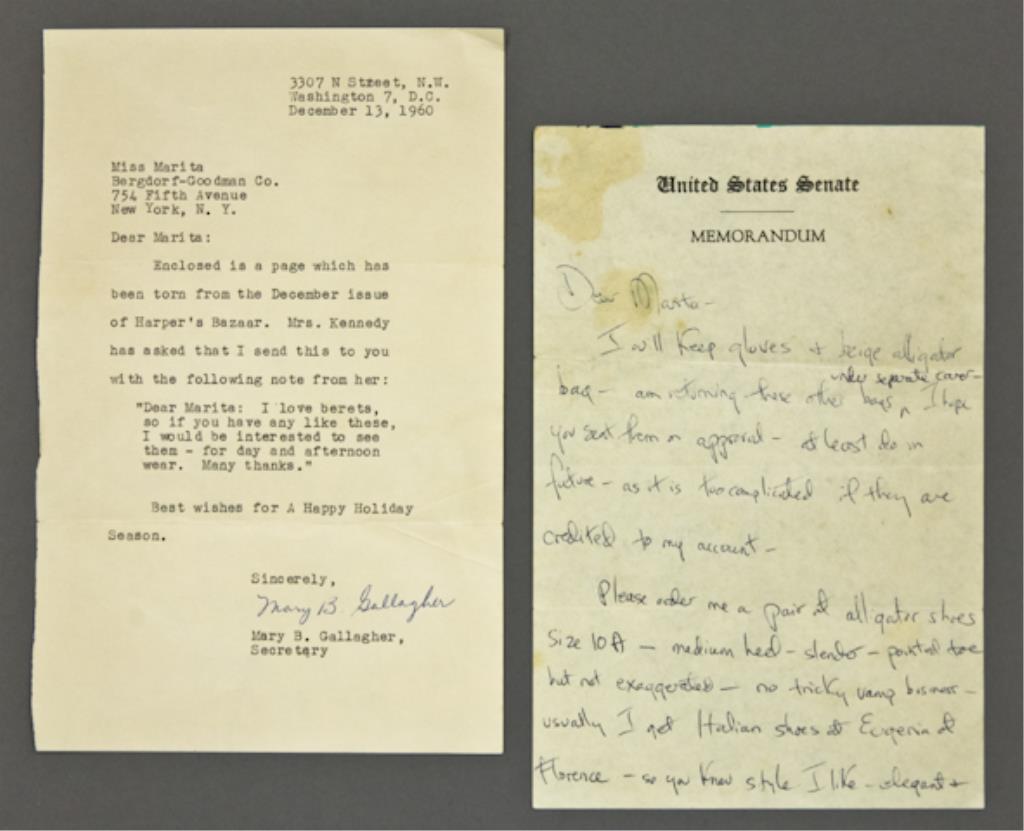 3307 N Street, N.W.
Washington 7, D.C.
December 13, 1960
Miss Marita
Bergdorf-Goodman Co.
754 Fifth Avenue
New York, N. Y.
Dear Marita:
Enclosed is a page which has
been torn from the December issue
of Harper's Bazaar. Mrs. Kennedy
has asked that I send this to you
with the following note from her:
"Dear Marita: I love berets,
so if you have any like these,
I would be interested to see
them - for day and afternoon
wear. Many thanks."
Best wishes for A Happy Holiday
Season.
Sincerely,
Mary B. Gallagher
Mary B. Gallagher,
Secretary
United States Senate
MEMORANDUM
Dear Marita -
I will keep gloves + beige alligator
under separate cover -
bag - am returning these other bags ^ I hope
you sent them on approval - at least do in
future - as it is too complicated if they are
credited to my account -
Please order me a pair of alligator shoes
Size 10 A - medium heel - slender - pointed toe
but not exaggerated - no tricky vamp business -
usually I get Italian shoes at Eugenia of
Florence - so you know style I like - elegant +